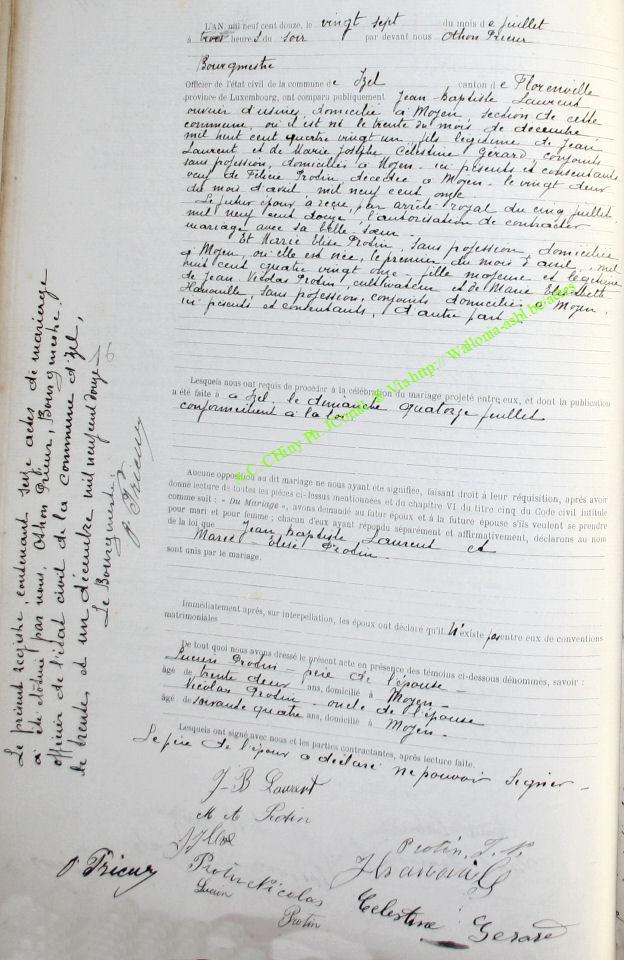 L'AN mil neuf cent douze, le vingt sept du mois de juillet
à trois heures du soir par devant nous Othon Prieur
Bourgmestre
Officier de l'état civil de la commune de Izel canton de Florenville
province de Luxembourg, ont comparu publiquement Jean-Baptiste Laurent
ouvrier d'usines, domicilié à Moyen, section de cette
commune, où il est né le trente du mois de décembre
mil huit cent quatre vingt un, fils légitime de Jean
Laurent et de Marie Josèphe Célestine Gérard, conjoints
sans profession, domiciliés à Moyen, ici présents et consentants,
veuf de Félicie Protin décédée à Moyen le vingt deux
du mois d'avril mil neuf cent onze
Le futur époux a reçu, par arrêté royal du cinq juillet
mil neuf cent douze, l'autorisation de contracter
mariage avec sa belle sœur.
Et Marie Elise Protin, sans profession, domiciliée
à Moyen, où elle est née, le premier du mois d'avril, mil
huit cent quatre vingt onze, fille majeure et légitime
de Jean Nicolas Protin, cultivateur et de Marie Elisabeth
Hanouille, sans profession, conjoints domiciliés à Moyen,
ici présents et consentants, d'autre part,
Lesquels nous ont requis de procéder à la célébration du mariage projeté entre eux, et dont la publication
a été faite à Izel, le dimanche quatorze juillet
conformément à la loi
Aucune opposition au dit mariage ne nous ayant été signifiée, faisant droit à leur réquisition, après avoir
donné lecture de toutes les pièces ci-dessus mentionnées et du chapitre VI du titre cinq du Code civil intitulé
comme suit : « Du Mariage », avons demandé au futur époux et à la future épouse s'ils veulent se prendre
pour mari et pour femme ; chacun d'eux ayant répondu séparément et affirmativement, déclarons au nom
de la loi que Jean Baptiste Laurent et
Marie Elise Protin
sont unis par le mariage.
Immédiatement après, sur interpellation, les époux ont déclaré qu'il n'existe pas entre eux de conventions
matrimoniales
De tout quoi nous avons dressé le présent acte en présence des témoins ci-dessous dénommés, savoir :
Lucien Protin frère de l'épouse
âgé de trente deux ans, domicilié à Moyen
Nicolas Protin oncle de l'épouse
âgé de soixante quatre ans, domicilié à Moyen
Lesquels ont signé avec nous et les parties contractantes, après lecture faite.
Le père de l'époux a déclaré ne pouvoir signer
J-B Laurent
Protin
Protin, J. N.
O Prieur
Protin Nicolas
Hanouille
Lucien Protin
Celestine Gerard
Le présent registre, contenant seize actes de mariage
a été clôturé par nous, Othon Prieur, Bourgmestre,
officier de l'état civil de la commune d'Izel,
le trente et un décembre mil neuf cent douze
Le Bourgmestre,
O Prieur
16
a.C. CHiny Ph. JComté @ Via http:// Wallonia-asbl.be/actes